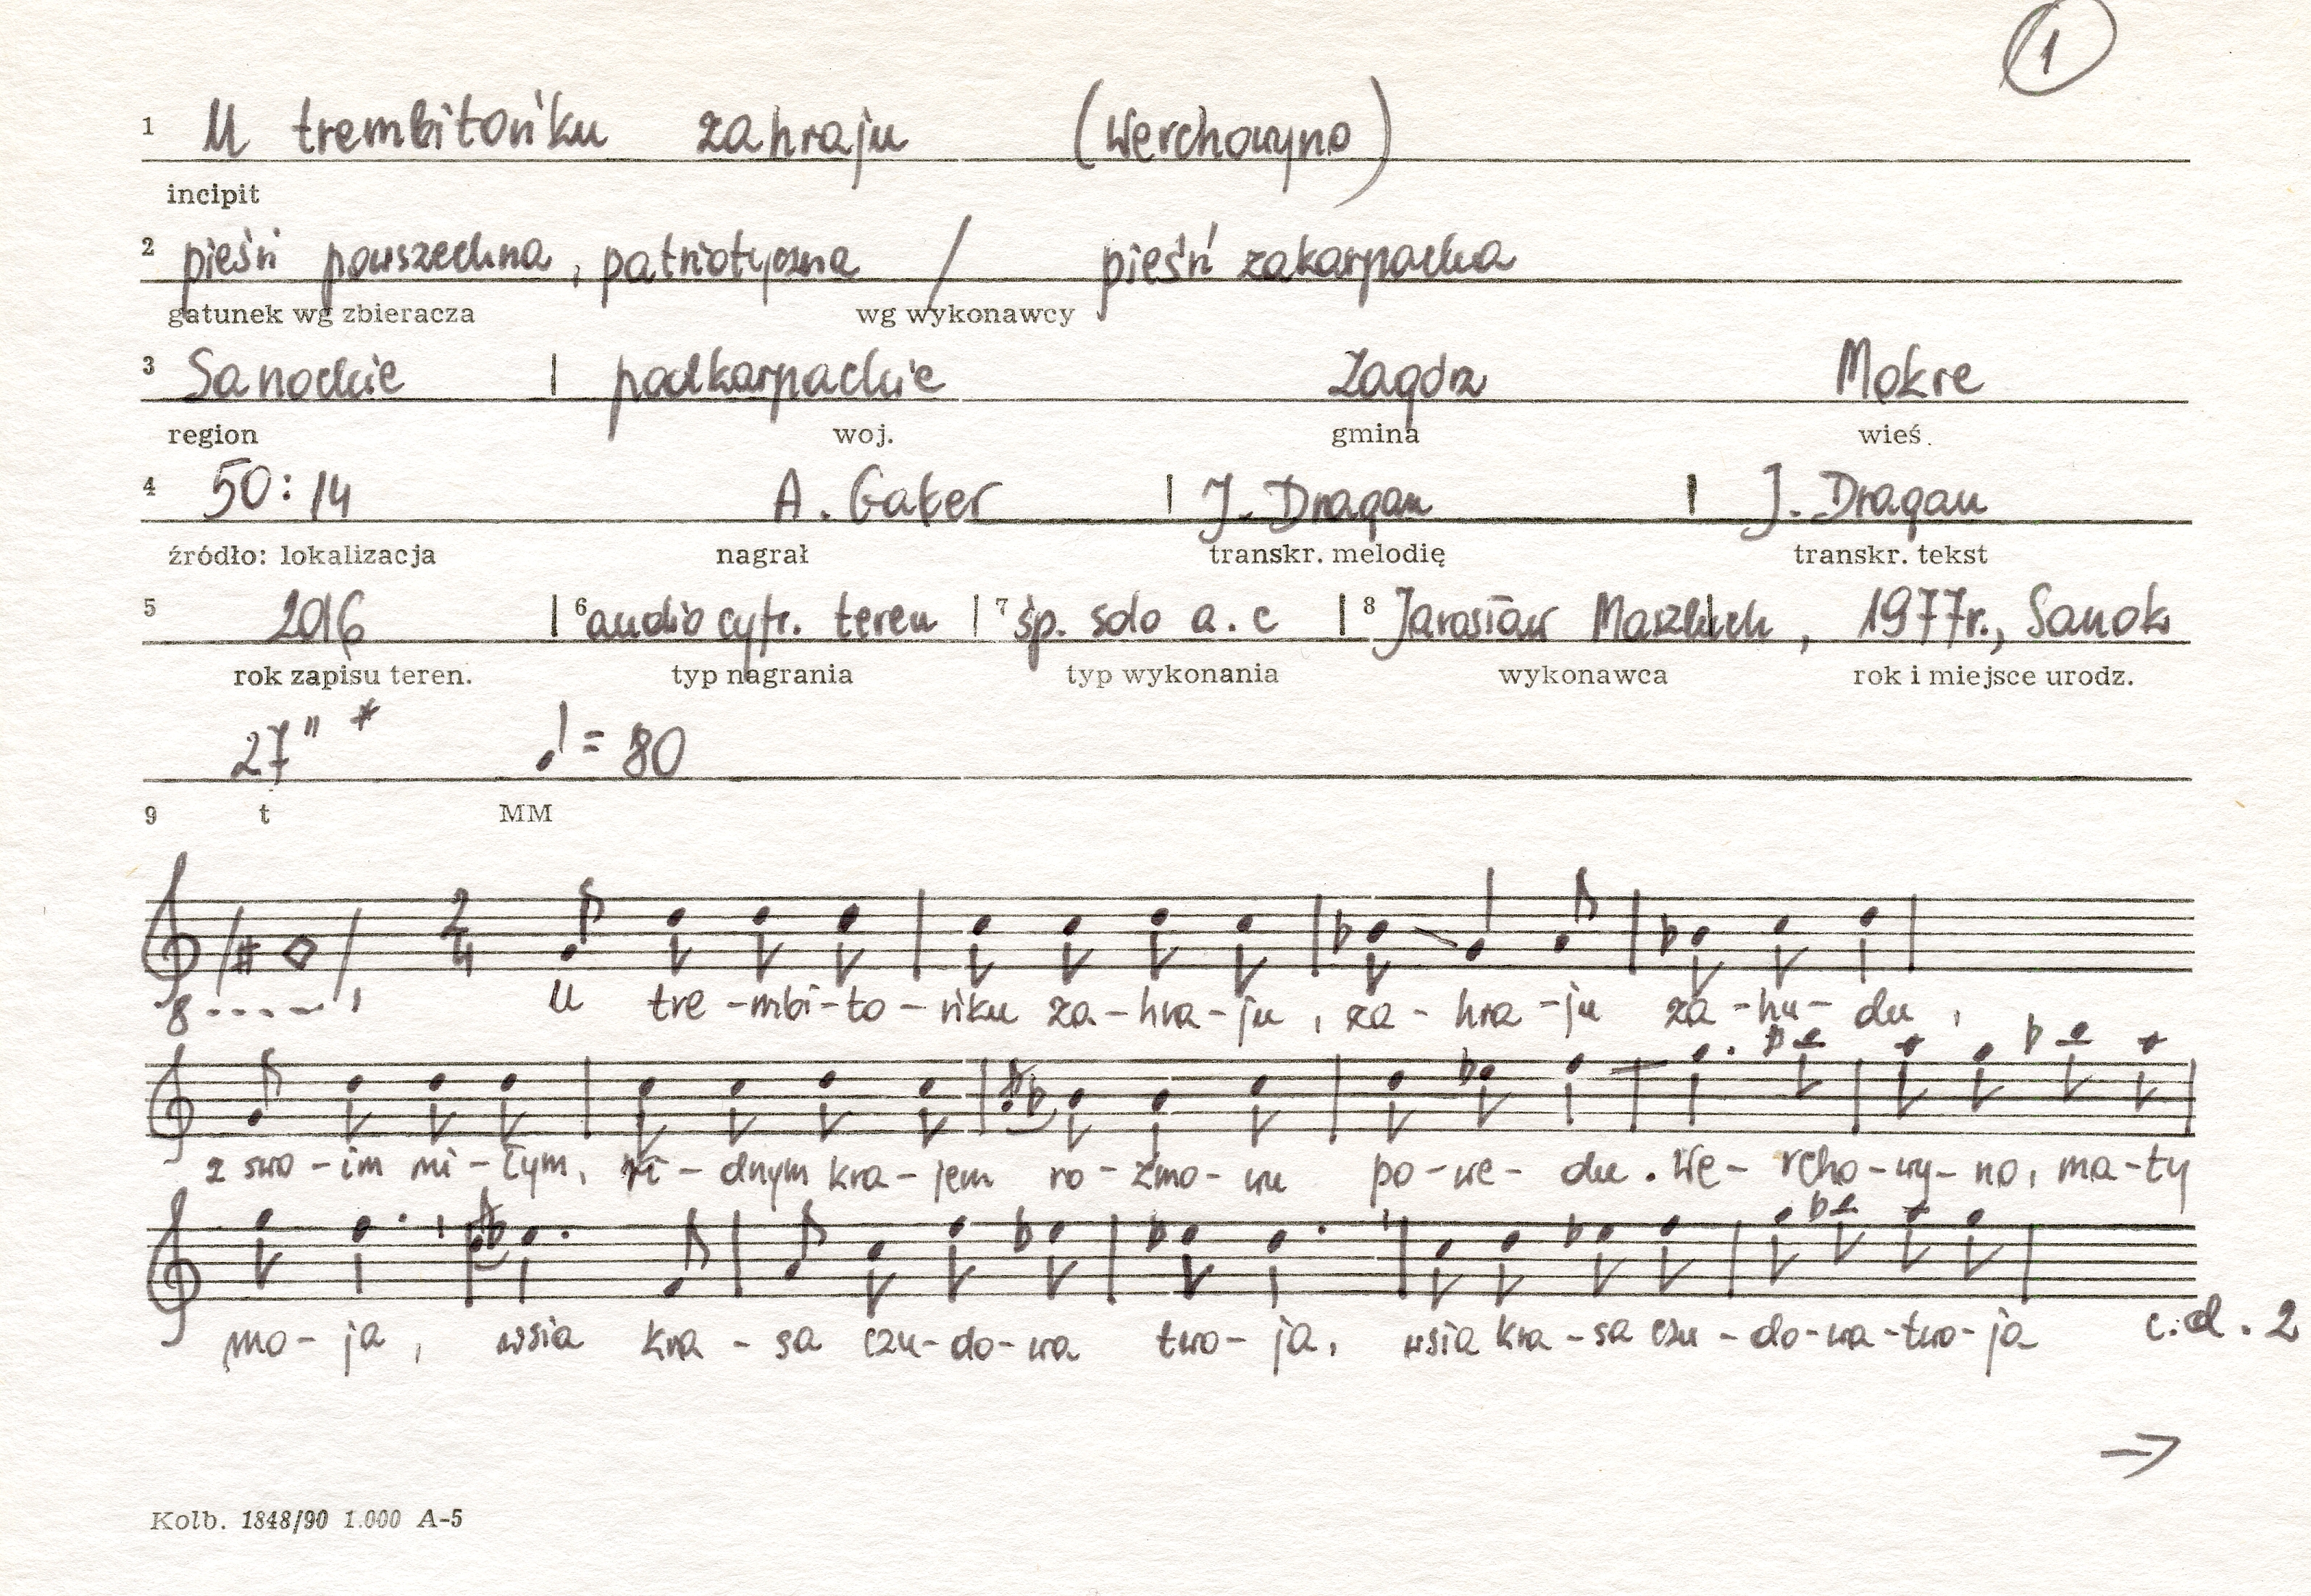 1
1 U trembitońku zahraju (Werchowyno)
incipit
2 pieśń powszechna, patriotyczna / pieśń zakarpacka
gatunek wg zbieracza wg wykonawcy
3 Sanockie | podkarpackie Zagórz Mokre
region woj. gmina wieś
4 50:14 A. Gaker | J. Dragan | J. Dragan
źródło: lokalizacja nagrał transkr. melodię transkr. tekst
5 2016 | 6 audio cyfr. teren | 7 śp. solo a.c | 8 Jarosław , 1977r., Sanok
rok zapisu teren. typ nagrania typ wykonania wykonawca rok i miejsce urodz.
27" * ♩ = 80
9 t MM
2/4
8----, U tre-mbi-to-ńku za-hra-ju, za-hra-ju za-hu-du,
z swo-im mi-łym, ri-dnym kra-jem ro-zmo-wu po-we-du. We-rcho-wy-no, ma-ty
mo-ja, wsia kra-sa czu-do-wa two-ja, wsia kra-sa czu-do-wa-two-ja c.d. 2
→
Kolb. 1848/90 1.000 A-5